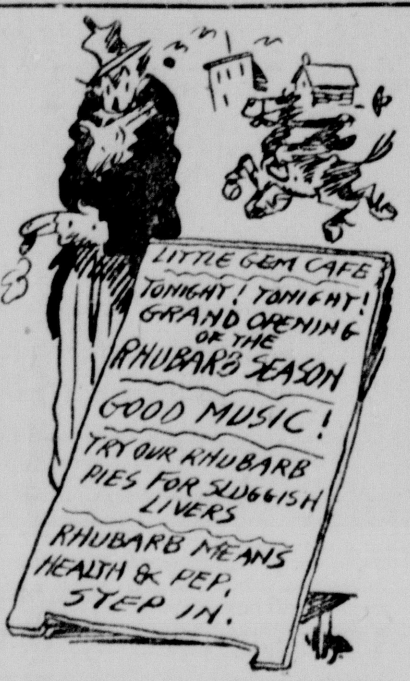 LITTLE GEM CAFE
TONIGHT! TONIGHT!
GRAND OPENING
OF THE
RHUBARB SEASON
GOOD MUSIC!
TRY OUR RHUBARB
PIES FOR SLUGGISH
LIVERS
RHUBARB MEANS
HEALTH & PEP.
STEP IN.